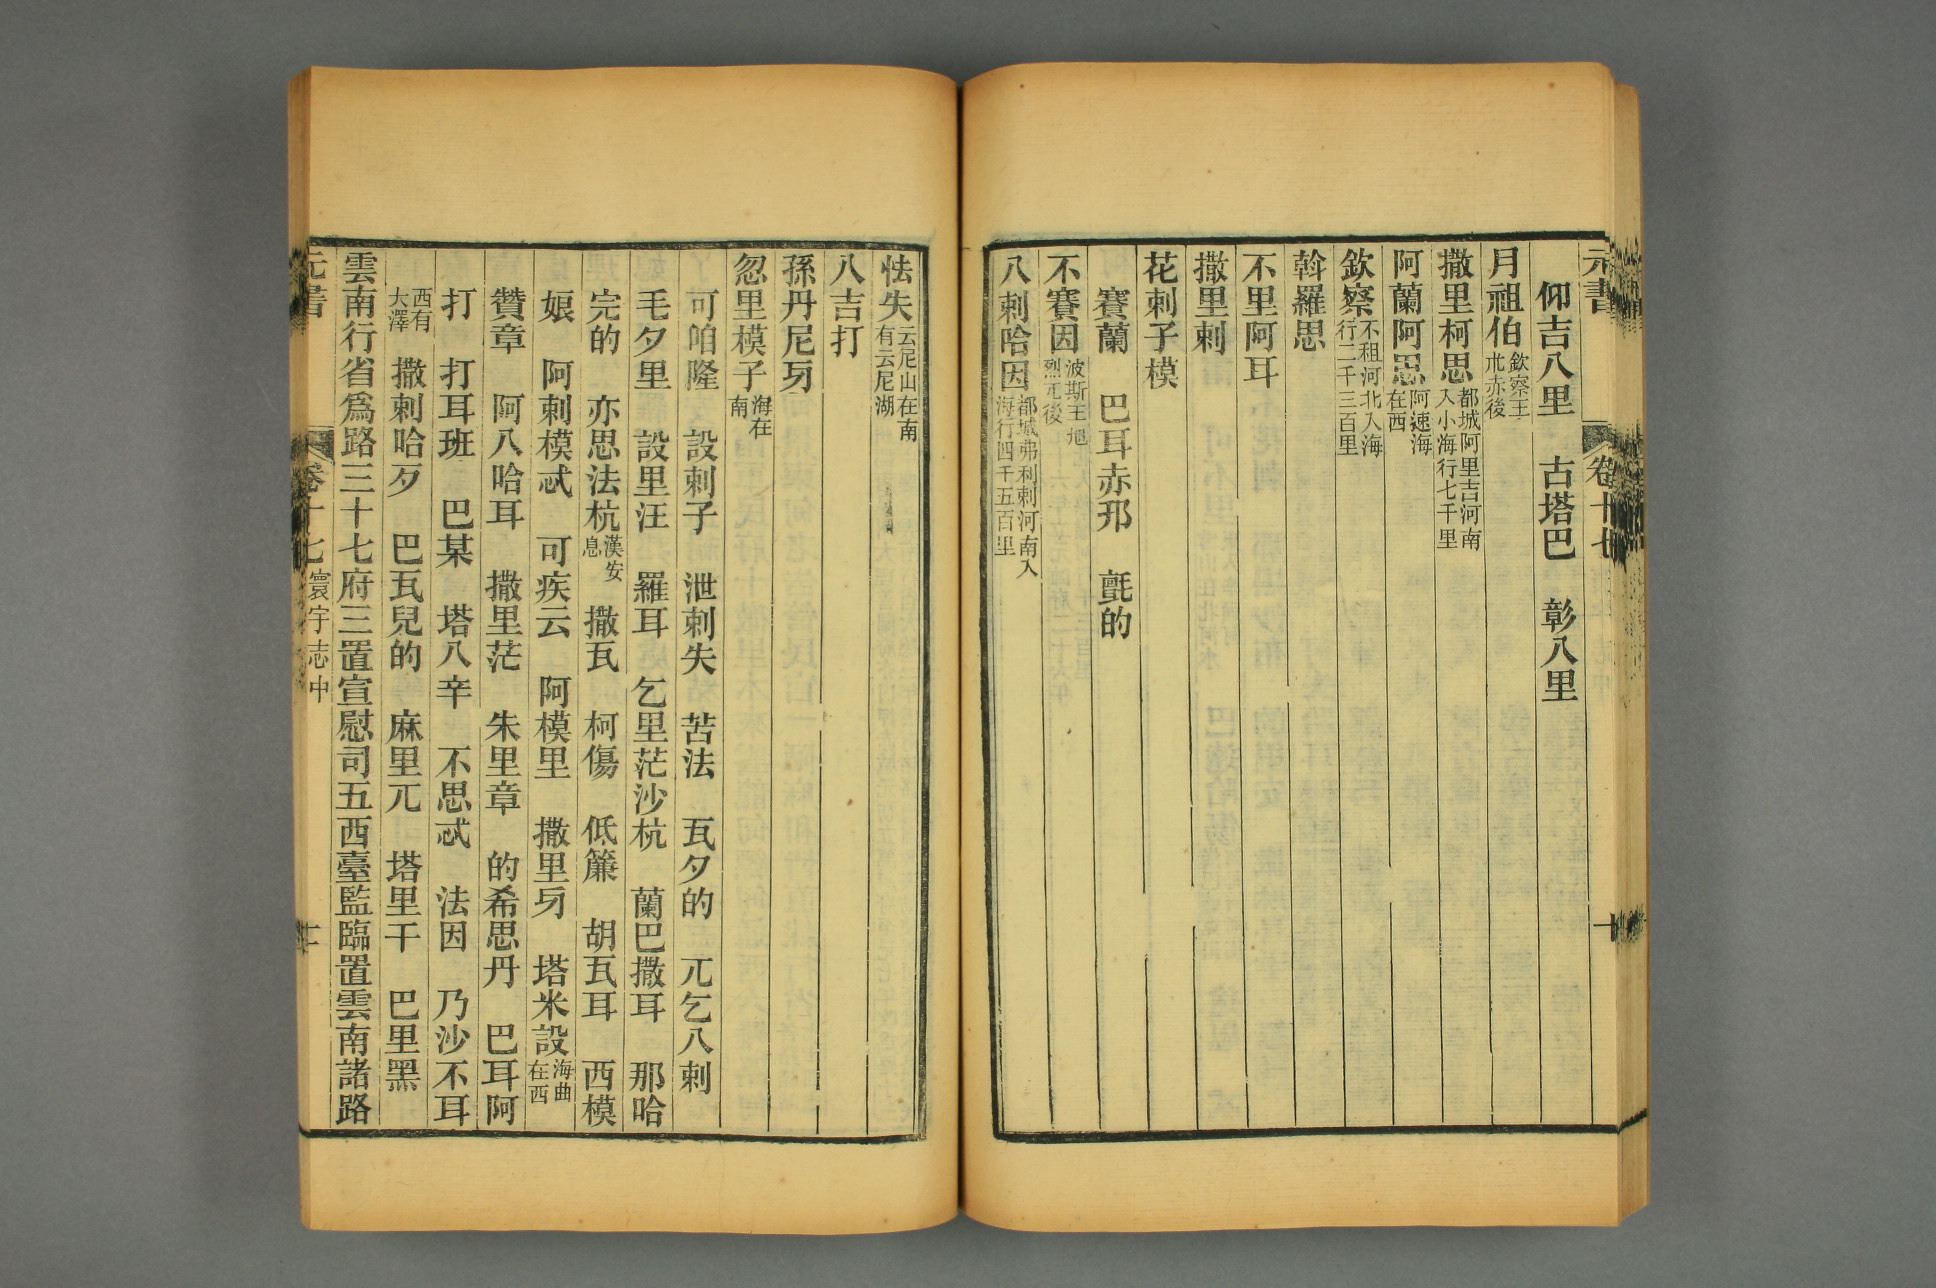 元書 卷十七 十
仰吉八里 古塔巴 彰八里
月祖伯 欽察王朮赤後
撒里柯思 都城阿里吉河南入小海行七千里
阿蘭阿思 阿速海在西
欽察 不租河北入海行二千三百里
斡羅思
不里阿耳
撒里剌
花剌子模
賽蘭 巴耳赤邗 氈的
不賽因 波斯王旭烈兀後
八剌哈因 都城弗利剌河南入海行四千五百里
怯失 云尼山在南有云尼湖
八吉打
孫丹尼牙
忽里模子 海在南
可咱隆 設剌子 泄剌失 苦法 瓦夕的 兀乞八剌
毛夕里 設里汪 羅耳 乞里茫沙杭 蘭巴撒耳 那哈
完的 亦思法杭 漢安息 撒瓦 柯傷 低簾 胡瓦耳 西模
娘 阿剌模忒 可疾云 阿模里 撒里牙 塔米設 海曲在西
贊章 阿八哈耳 撒里茫 朱里章 的希思丹 巴耳阿
打 打耳班 巴某 塔八辛 不思忒 法因 乃沙不耳
西有大澤 撒剌哈歹 巴瓦兒的 麻里兀 塔里干 巴里黑
雲南行省爲路三十七府三置宣慰司五西臺監臨置雲南諸路
元書 卷十七 寰宇志中 十一